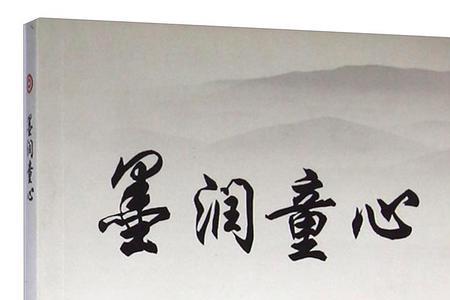 墨润童心
墨润童心